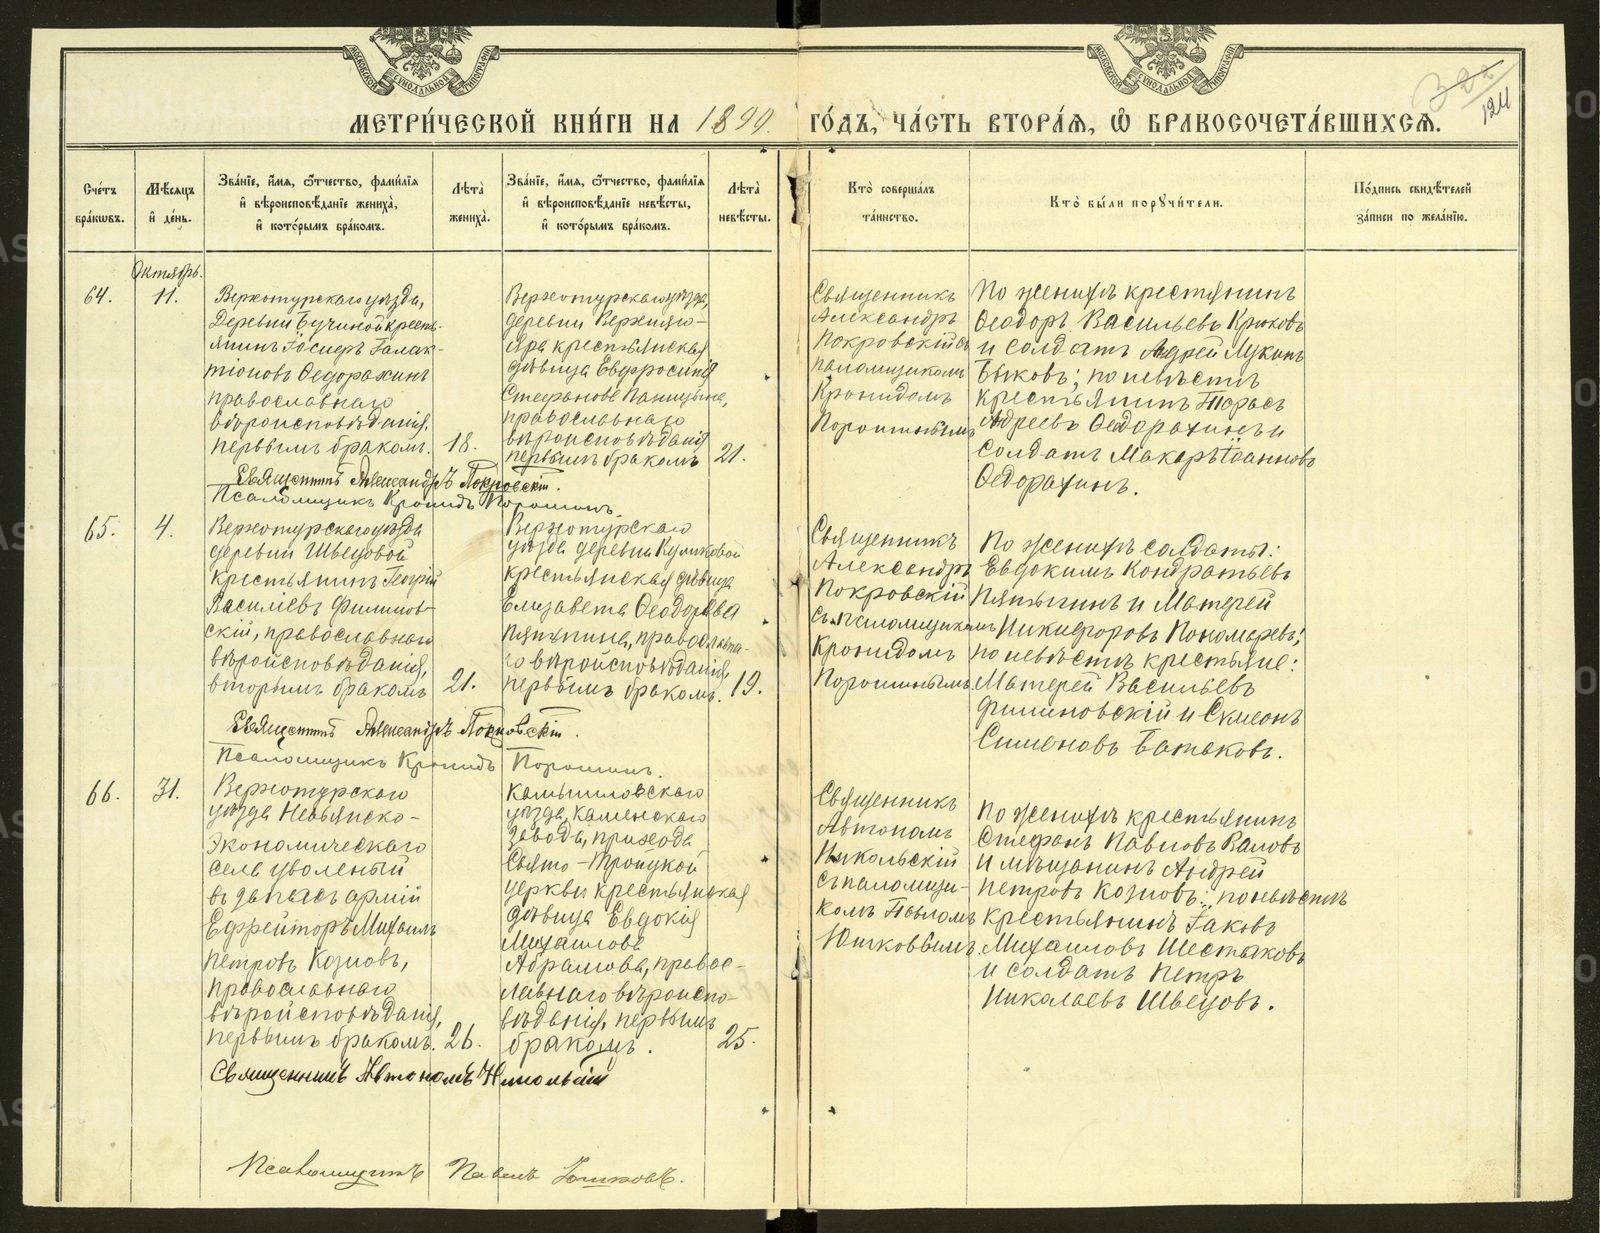 МЕТРИЧЕСКОЙ КНИГИ НА 1899 ГОДЪ, ЧАСТЬ ВТОРАЯ, Ѡ БРАКОСОЧЕТАВШИХСЯ.
124
Счетъ браковъ.
Мѣсяцъ и день.
Званіе, имя, отчество, фамилія и вѣроисповѣданіе жениха, и которымъ бракомъ.
Лѣта жениха.
Званіе, имя, отчество, фамилія и вѣроисповѣданіе невѣсты, и которымъ бракомъ.
Лѣта невѣсты.
Кто совершалъ таинство.
Кто были поручители.
Подпись свидѣтелей записи по желанію.
Октябрь.
64.
11.
Верхотурскаго уѣзда,
Деревни Бучиной кресть-
янинъ Іосифъ Галак-
тіоновъ Ѳедорахинъ
православнаго
вѣроисповѣданія,
первымъ бракомъ.
18.
Верхотурскаго уѣзда,
деревни Верхняго-
Яра крестьянская
дѣвица Евфросинія
Стефанова Паницына,
православнаго
вѣроисповѣданія
первымъ бракомъ
21.
Священникъ
Александръ
Покровскій съ
псаломщикомъ
Кронидомъ
Порошинымъ
По женихѣ крестьянинъ
Ѳеодоръ Васильевъ Крюковъ
и солдатъ Андрей Лукинъ
Быковъ; по невѣстѣ
крестьянинъ Тарасъ
Андреевъ Ѳедорахинъ и
Солдатъ Макаръ Іоанновъ
Ѳедорахинъ.
Священникъ Александръ Покровскій.
Псаломщикъ Кронидъ Порошинъ.
65.
4.
Верхотурскаго уѣзда
деревни Швецовой
крестьянинъ Георгій
Василіевъ Филинов-
скій, православнаго
вѣроисповѣданія,
вторымъ бракомъ
21.
Верхотурскаго
уѣзда деревни Куликовой
крестьянская дѣвица
Елизавета Ѳеодорова
Пятыгина, православна-
го вѣроисповѣданія,
первымъ бракомъ.
19.
Священникъ
Александръ
Покровскій
съ псаломщикомъ
Кронидомъ
Порошинымъ
По женихѣ солдаты:
Евдокимъ Кондратьевъ
Пятыгинъ и Матѳей
Никифоровъ Пономаревъ;
по невѣстѣ крестьяне:
Матѳей Васильевъ
Филиновскій и Сумеонъ
Симеоновъ Батаковъ.
Священникъ Александръ Покровскій.
Псаломщикъ Кронидъ Порошинъ.
66.
31.
Верхотурскаго
уѣзда Невьянско-
Экономическаго
села уволеный
въ запасъ арміи
Ефрейторъ Михаилъ
Петровъ Козловъ,
православнаго
вѣроисповѣданія,
первымъ бракомъ.
26.
Камышловскаго
уѣзда, Каменскаго
завода, прихода
Свято-Троицкой
церкви крестьянская
дѣвица Евдокія
Михаилова
Абрамова, право-
славнаго вѣроиспо-
вѣданія, первымъ
бракомъ.
25.
Священникъ
Автономъ
Никольскій
съ псаломщи-
комъ Павломъ
Юшковымъ
По женихѣ крестьянинъ
Стефанъ Павловъ Валовъ
и мѣщанинъ Андрей
Петровъ Козловъ; по невѣстѣ
крестьянинъ Іаковъ
Михаиловъ Шестаковъ
и солдатъ Петръ
Николаевъ Швецовъ.
Священникъ Автономъ Никольскій
Псаломщикъ Павелъ Юшковъ.